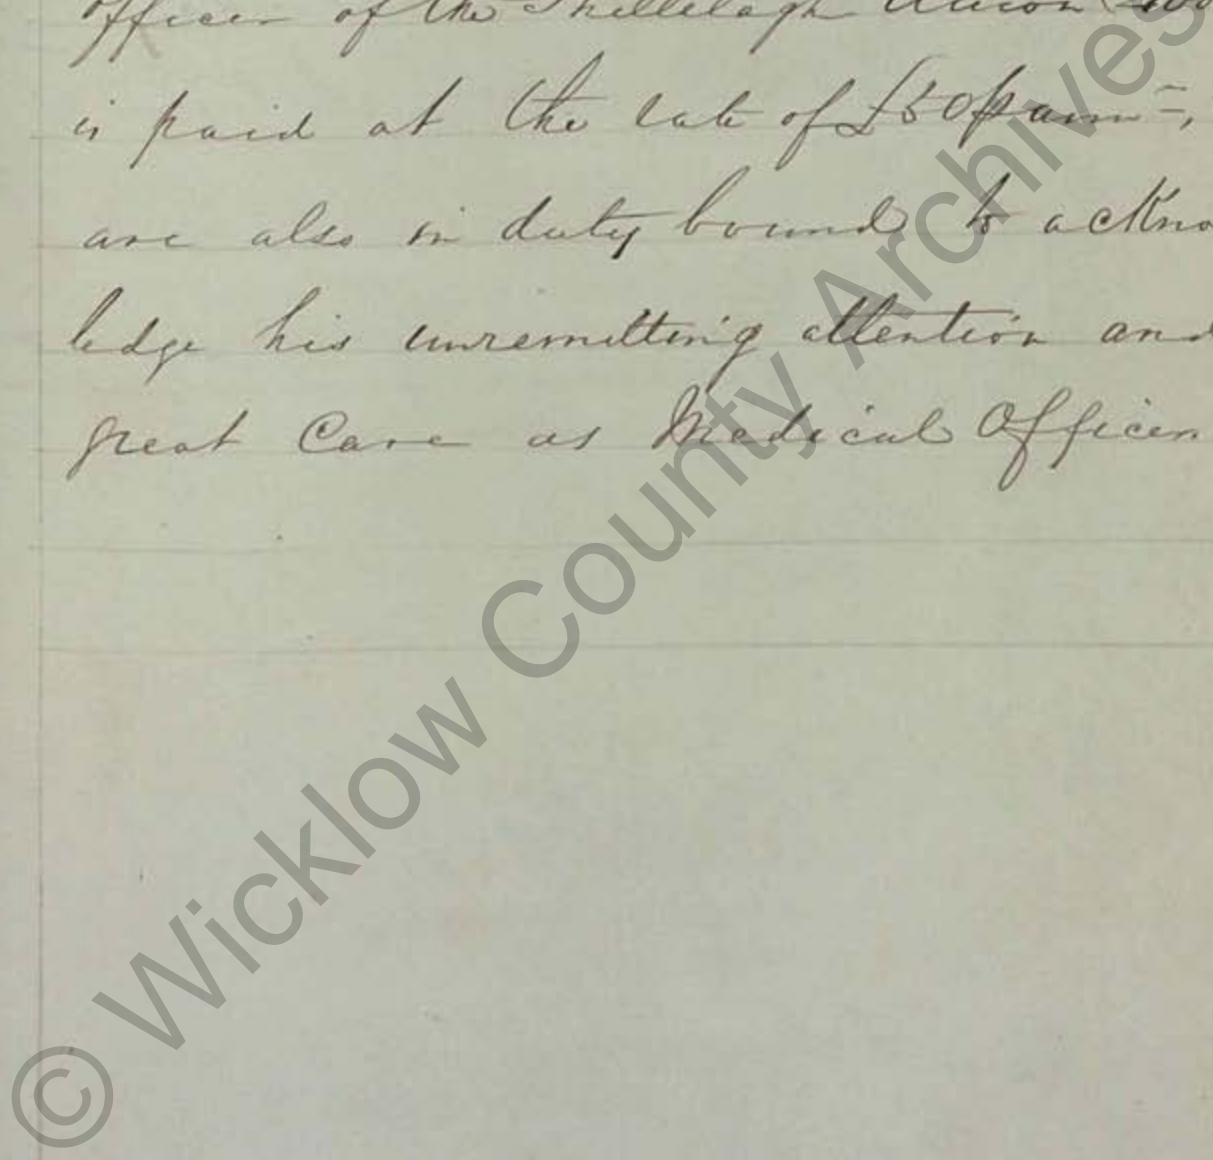 Officer of the Shillelagh Union
is paid at the rate of £50 p ann=,
are also in duty bound to ackno
ledge his unremitting attention and
great Care as Medical Officer
© Wicklow County Archives